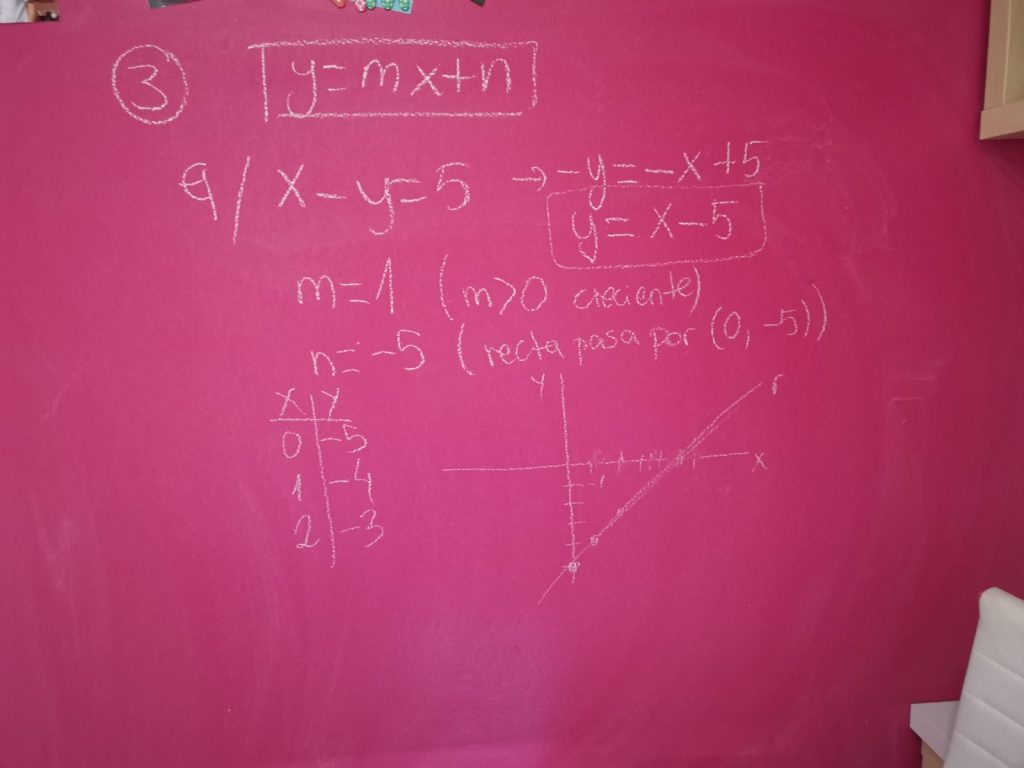 3 y=mx+n
a/ x-y=5 → -y=-x+5
y=x-5
m=1 (m>0 creciente)
n=-5 (recta pasa por (0,-5))
x y
0 -5
1 -4
2 -3
y r
x